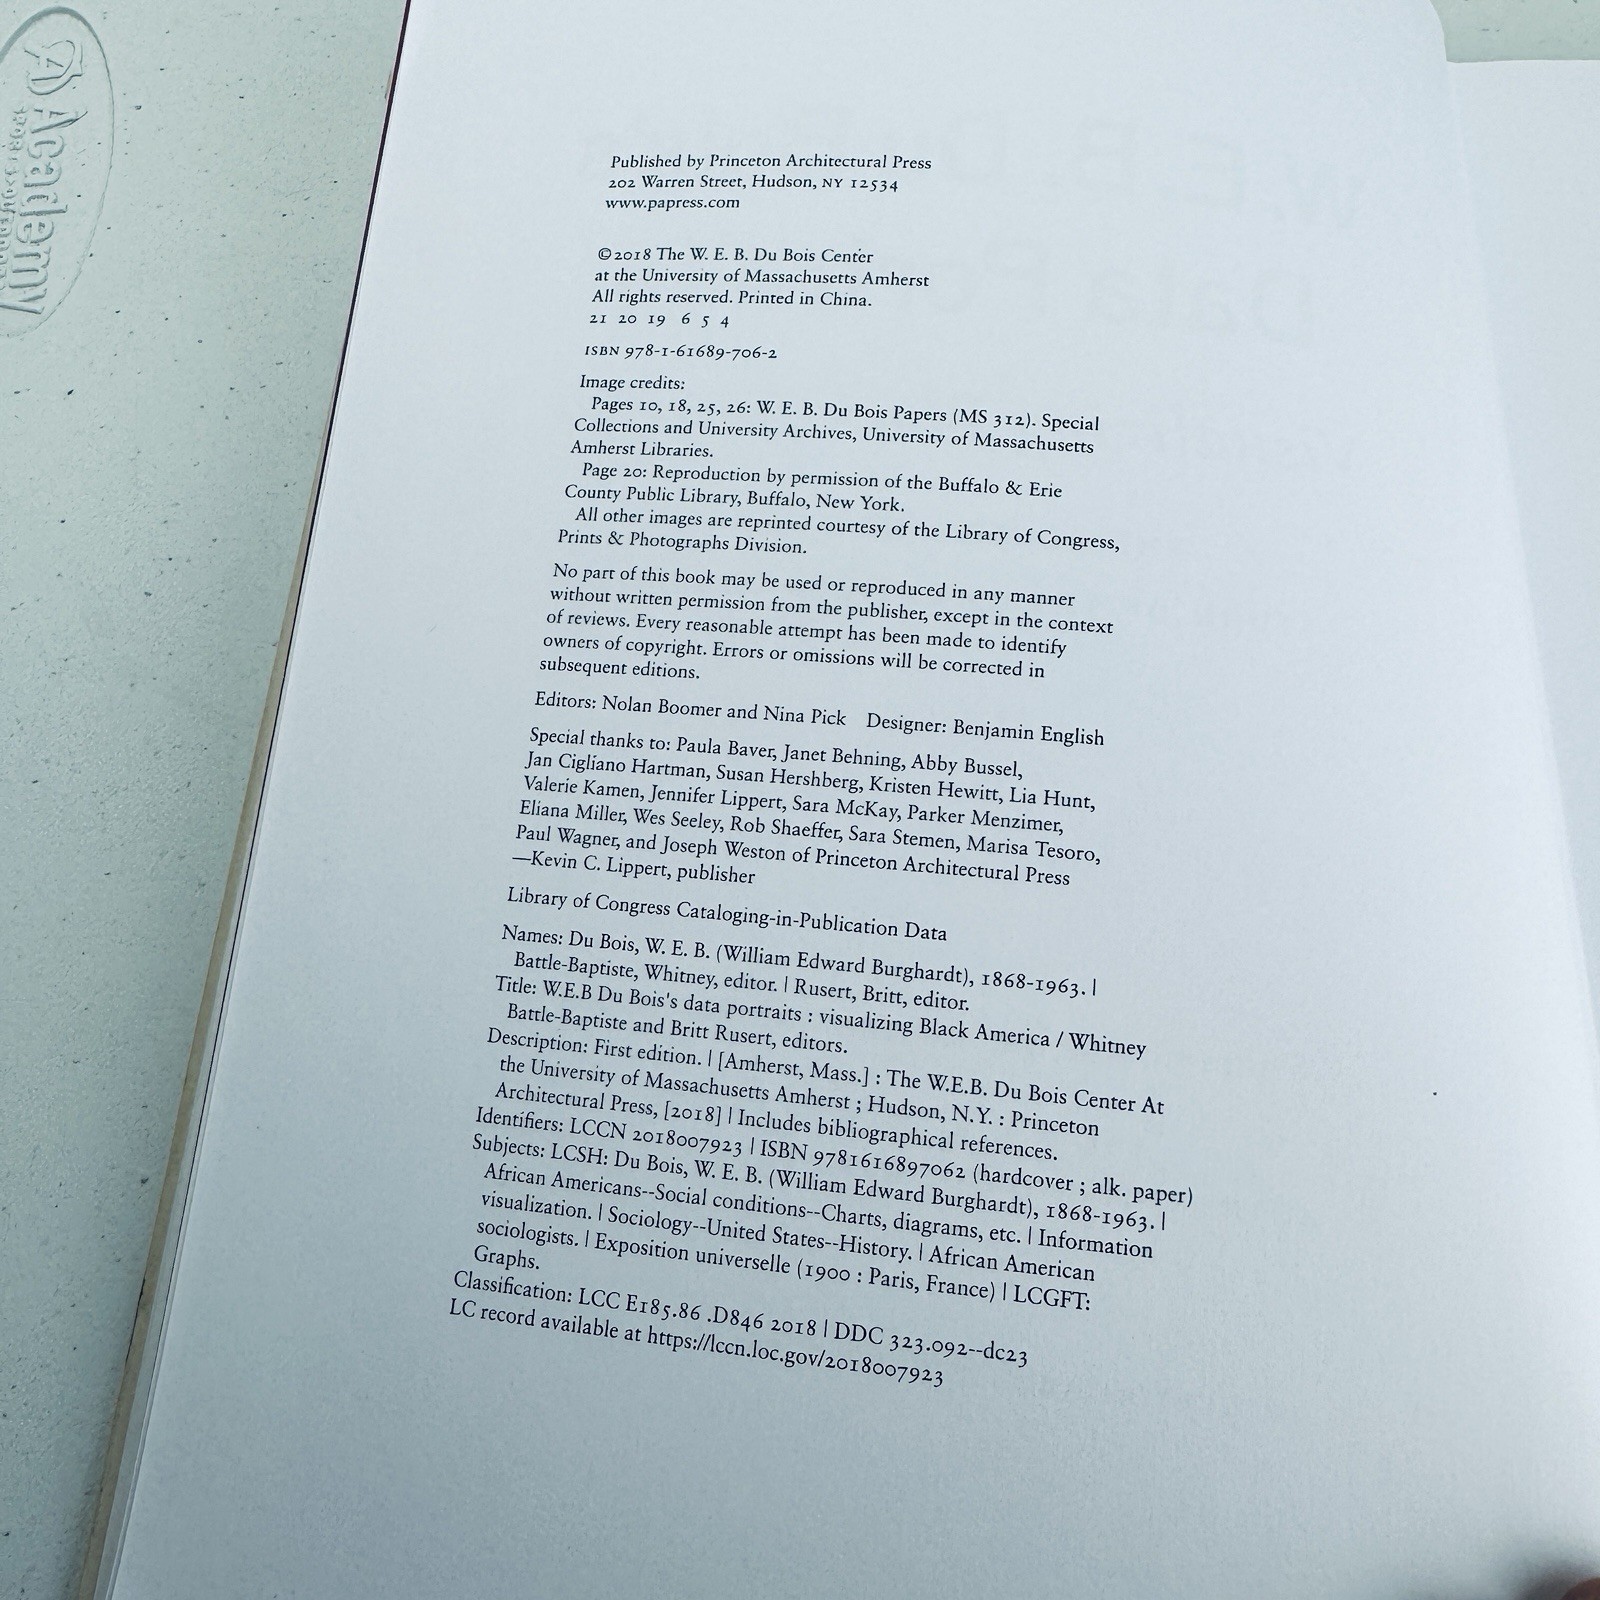 Academy
Published by Princeton Architectural Press
202 Warren Street, Hudson, NY 12534
www.papress.com
©2018 The W. E. B. Du Bois Center
at the University of Massachusetts Amherst
All rights reserved. Printed in China.
21 20 19 6 5 4
ISBN 978-1-61689-706-2
Image credits:
Pages 10, 18, 25, 26: W. E. B. Du Bois Papers (MS 312). Special
Collections and University Archives, University of Massachusetts
Amherst Libraries.
Page 20: Reproduction by permission of the Buffalo & Erie
County Public Library, Buffalo, New York.
All other images are reprinted courtesy of the Library of Congress,
Prints & Photographs Division.
No part of this book may be used or reproduced in any manner
without written permission from the publisher, except in the context
of reviews. Every reasonable attempt has been made to identify
owners of copyright. Errors or omissions will be corrected in
subsequent editions.
Editors: Nolan Boomer and Nina Pick Designer: Benjamin English
Special thanks to: Paula Baver, Janet Behning, Abby Bussel,
Jan Cigliano Hartman, Susan Hershberg, Kristen Hewitt, Lia Hunt,
Valerie Kamen, Jennifer Lippert, Sara McKay, Parker Menzimer,
Eliana Miller, Wes Seeley, Rob Shaeffer, Sara Stemen, Marisa Tesoro,
Paul Wagner, and Joseph Weston of Princeton Architectural Press
—Kevin C. Lippert, publisher
Library of Congress Cataloging-in-Publication Data
Names: Du Bois, W. E. B. (William Edward Burghardt), 1868-1963. |
Battle-Baptiste, Whitney, editor. | Rusert, Britt, editor.
Title: W.E.B Du Bois's data portraits : visualizing Black America / Whitney
Battle-Baptiste and Britt Rusert, editors.
Description: First edition. | [Amherst, Mass.] : The W.E.B. Du Bois Center At
the University of Massachusetts Amherst ; Hudson, N.Y. : Princeton
Architectural Press, [2018] | Includes bibliographical references.
Identifiers: LCCN 2018007923 | ISBN 9781616897062 (hardcover ; alk. paper)
Subjects: LCSH: Du Bois, W. E. B. (William Edward Burghardt), 1868-1963. |
African Americans--Social conditions--Charts, diagrams, etc. | Information
visualization. | Sociology--United States--History. | African American
sociologists. | Exposition universelle (1900 : Paris, France) | LCGFT:
Graphs.
Classification: LCC E185.86 .D846 2018 | DDC 323.092--dc23
LC record available at https://lccn.loc.gov/2018007923